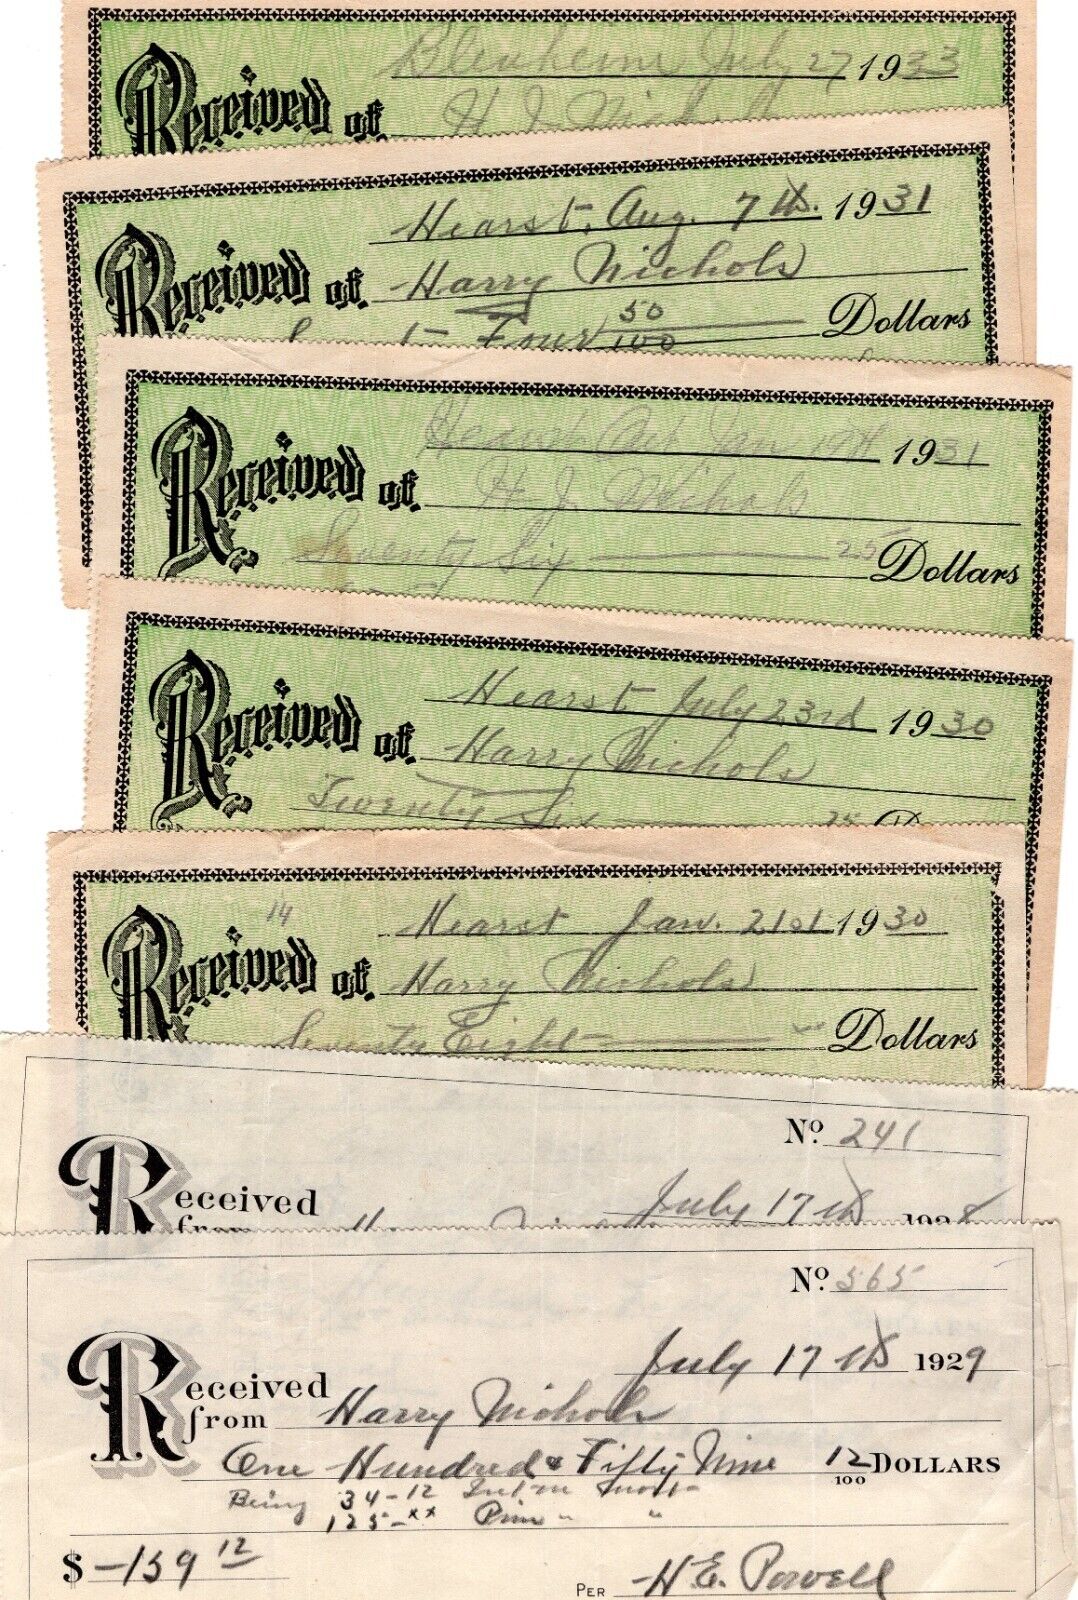 Blenheim July 27 1933
Received of H J Nichols
Hearst, Aug. 7th. 1931
Received of Harry Nichols
Four 50/100 Dollars
Hearst Ont Jan 19th 1931
Received of H. J. Nichols
Seventy Six 25 Dollars
Hearst July 23rd 1930
Received of Harry Nichols
Twenty Six 25 D
14 Hearst Jan. 21st 1930
Received of Harry Nichols
Seventy Eight Dollars
No. 241
July 17th 1928
Received
from
No. 565
July 17th 1929
Received
from Harry Nichols
One Hundred & Fifty Nine 12/100 DOLLARS
Being 34-12 Int on
125-xx Prin " "
$ -159 12
PER H.E. Powell